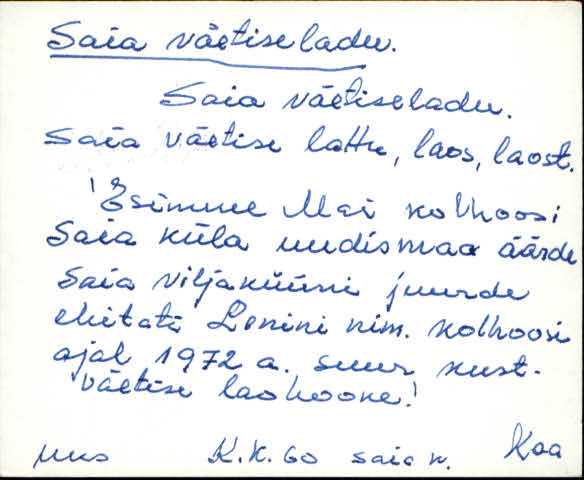 Saia väetiseladu.
Saia väetiseladu.
Saia väetise lattu, laos, laost.
'Esimene Mai kolhoosi
Saia küla uudismaa äärde
Saia viljaküüni juurde
ehitati Lenini nim. kolhoosi
ajal 1972 a. suur kunst-
väetise laohoone!
K.K. 60 Saia k. Kaa